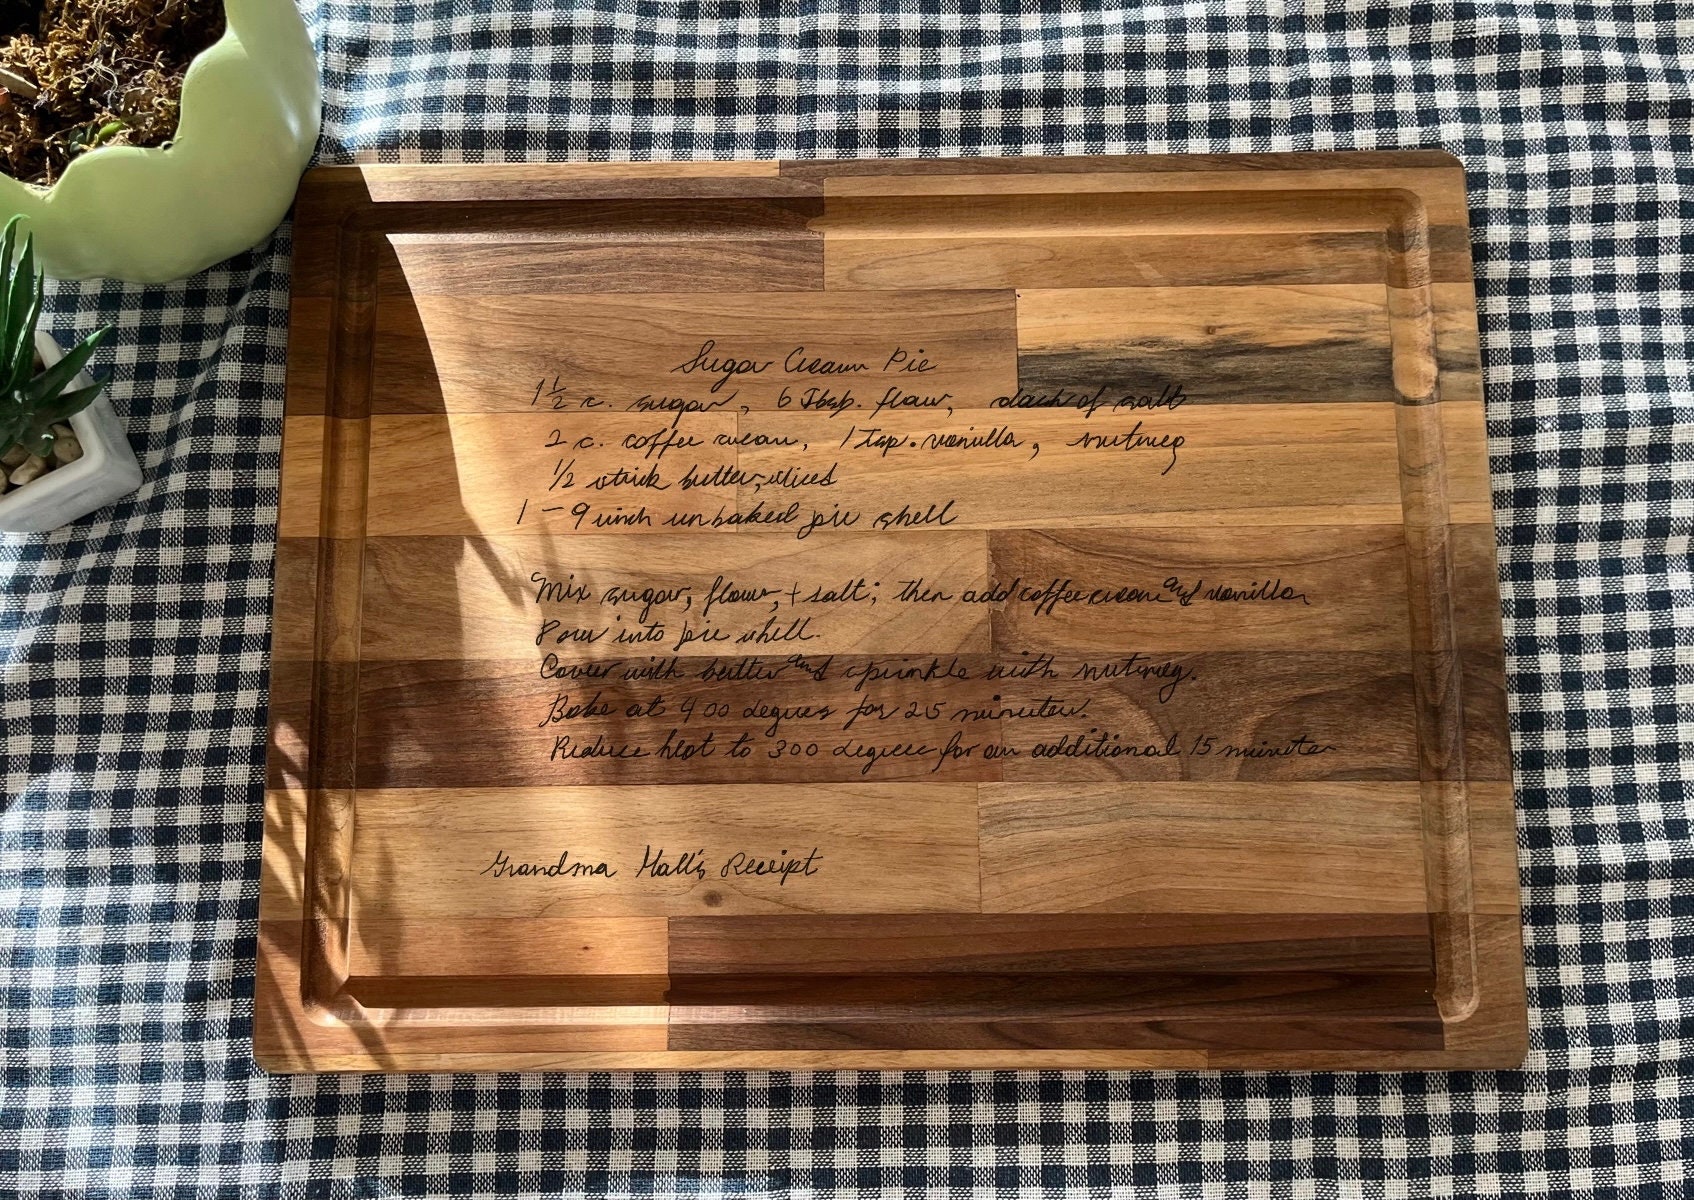 Sugar Cream Pie
1 1/2 c. sugar, 6 Tbsp. flour, dash of salt
2 c. coffee cream, 1 Tsp. vanilla, nutmeg
1/2 stick butter, slices
1 - 9 inch unbaked pie shell
Mix sugar, flour, + salt; then add coffee cream and vanilla
Pour into pie shell.
Cover with butter and sprinkle with nutmeg.
Bake at 400 degrees for 25 minutes.
Reduce heat to 300 degrees for an additional 15 minutes
Grandma Hall's Receipt